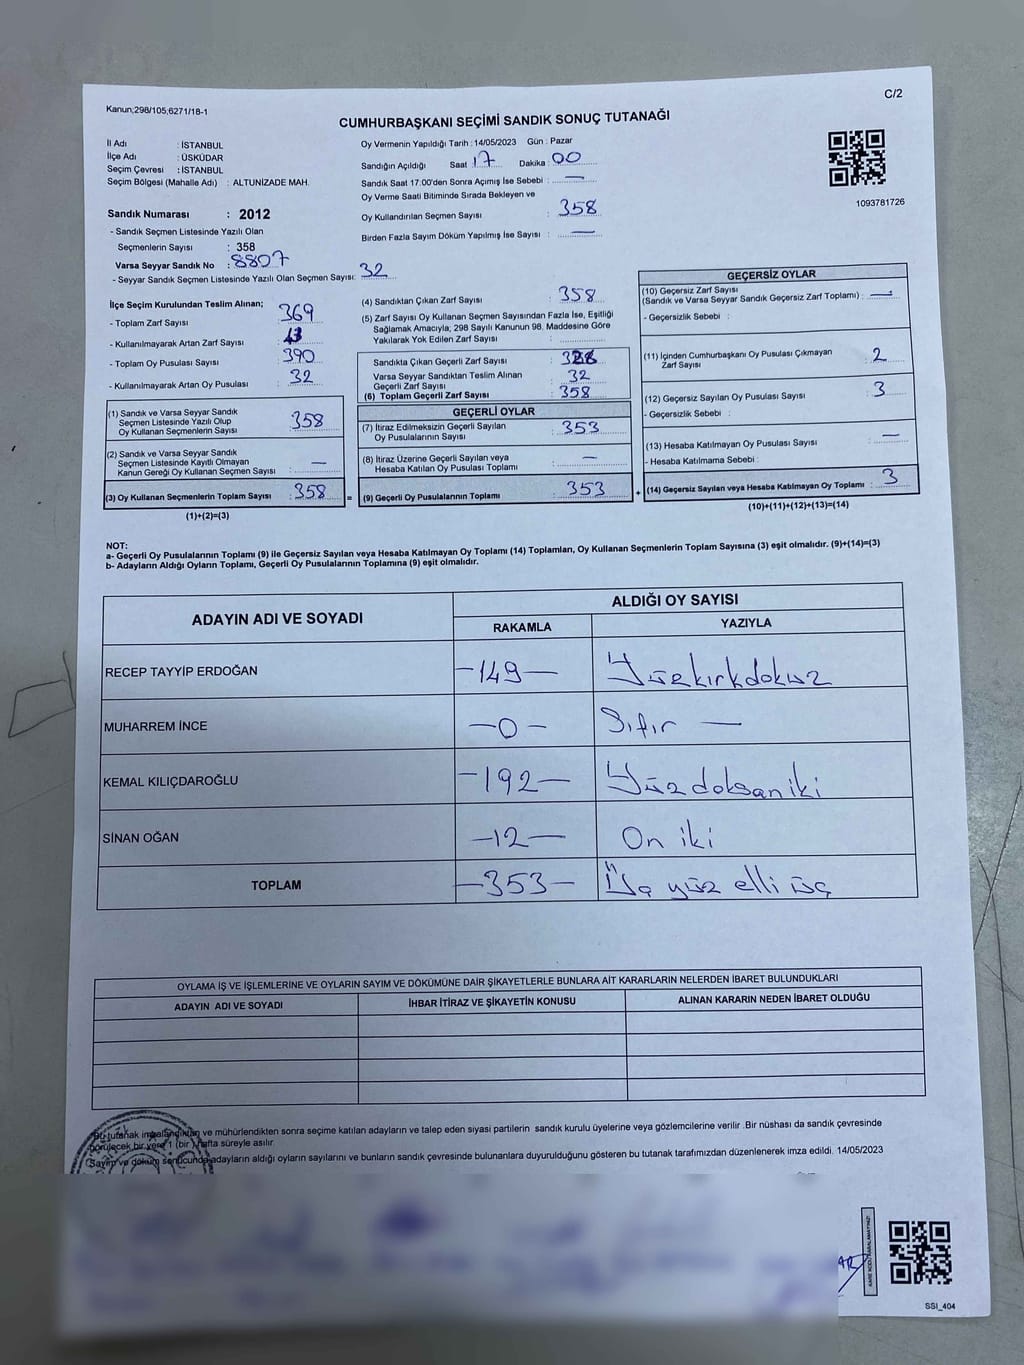 C/2
Kanun;298/105,6271/18-1
CUMHURBAŞKANI SEÇİMİ SANDIK SONUÇ TUTANAĞI
İl Adı : İSTANBUL
İlçe Adı : ÜSKÜDAR
Seçim Çevresi : İSTANBUL
Seçim Bölgesi (Mahalle Adı) : ALTUNİZADE MAH.
Sandık Numarası : 2012
- Sandık Seçmen Listesinde Yazılı Olan
Seçmenlerin Sayısı : 358
Varsa Seyyar Sandık No : 8807
- Seyyar Sandık Seçmen Listesinde Yazılı Olan Seçmen Sayısı: 32
Oy Vermenin Yapıldığı Tarih : 14/05/2023 Gün : Pazar
Sandığın Açıldığı Saat 17 Dakika : 00
Sandık Saat 17:00'den Sonra Açımış İse Sebebi : —
Oy Verme Saati Bitiminde Sırada Bekleyen ve
Oy Kullandırılan Seçmen Sayısı : 358
Birden Fazla Sayım Döküm Yapılmış İse Sayısı : —
1093781726
İlçe Seçim Kurulundan Teslim Alınan;
- Toplam Zarf Sayısı : 369
- Kullanılmayarak Artan Zarf Sayısı :
- Toplam Oy Pusulası Sayısı : 390
- Kullanılmayarak Artan Oy Pusulası : 32
(1) Sandık ve Varsa Seyyar Sandık
Seçmen Listesinde Yazılı Olup
Oy Kullanan Seçmenlerin Sayısı : 358
(2) Sandık ve Varsa Seyyar Sandık
Seçmen Listesinde Kayıtlı Olmayan
Kanun Gereği Oy Kullanan Seçmen Sayısı : —
(3) Oy Kullanan Seçmenlerin Toplam Sayısı : 358 =
(1)+(2)=(3)
(4) Sandıktan Çıkan Zarf Sayısı : 358
(5) Zarf Sayısı Oy Kullanan Seçmen Sayısından Fazla İse, Eşitliği
Sağlamak Amacıyla; 298 Sayılı Kanunun 98. Maddesine Göre
Yakılarak Yok Edilen Zarf Sayısı :
Sandıkta Çıkan Geçerli Zarf Sayısı :
Varsa Seyyar Sandıktan Teslim Alınan
Geçerli Zarf Sayısı : 32
(6) Toplam Geçerli Zarf Sayısı : 358
GEÇERLİ OYLAR
(7) İtiraz Edilmeksizin Geçerli Sayılan
Oy Pusulalarının Sayısı : 353
(8) İtiraz Üzerine Geçerli Sayılan veya
Hesaba Katılan Oy Pusulası Toplamı : —
(9) Geçerli Oy Pusulalarının Toplamı : 353 +
GEÇERSİZ OYLAR
(10) Geçersiz Zarf Sayısı
(Sandık ve Varsa Seyyar Sandık Geçersiz Zarf Toplamı) : —
- Geçersizlik Sebebi :
(11) İçinden Cumhurbaşkanı Oy Pusulası Çıkmayan
Zarf Sayısı : 2
(12) Geçersiz Sayılan Oy Pusulası Sayısı : 3
- Geçersizlik Sebebi :
(13) Hesaba Katılmayan Oy Pusulası Sayısı : —
- Hesaba Katılmama Sebebi :
(14) Geçersiz Sayılan veya Hesaba Katılmayan Oy Toplamı : 3
(10)+(11)+(12)+(13)=(14)
NOT:
a- Geçerli Oy Pusulalarının Toplamı (9) ile Geçersiz Sayılan veya Hesaba Katılmayan Oy Toplamı (14) Toplamları, Oy Kullanan Seçmenlerin Toplam Sayısına (3) eşit olmalıdır. (9)+(14)=(3)
b- Adayların Aldığı Oyların Toplamı, Geçerli Oy Pusulalarının Toplamına (9) eşit olmalıdır.
ADAYIN ADI VE SOYADI ALDIĞI OY SAYISI
RAKAMLA YAZIYLA
RECEP TAYYİP ERDOĞAN -149- Yüzkırkdokuz
MUHARREM İNCE -0- Sıfır —
KEMAL KILIÇDAROĞLU -192- Yüzdoksaniki
SİNAN OĞAN -12- On iki
TOPLAM -353- Üç yüz elli üç
OYLAMA İŞ VE İŞLEMLERİNE VE OYLARIN SAYIM VE DÖKÜMÜNE DAİR ŞİKAYETLERLE BUNLARA AİT KARARLARIN NELERDEN İBARET BULUNDUKLARI
ADAYIN ADI VE SOYADI İHBAR İTİRAZ VE ŞİKAYETİN KONUSU ALINAN KARARIN NEDEN İBARET OLDUĞU
Bu tutanak imzalandıktan ve mühürlendikten sonra seçime katılan adayların ve talep eden siyasi partilerin sandık kurulu üyelerine veya gözlemcilerine verilir .Bir nüshası da sandık çevresinde
görülecek bir yere 1 (bir) hafta süreyle asılır.
Sayım ve döküm sonucunda adayların aldığı oyların sayılarını ve bunların sandık çevresinde bulunanlara duyurulduğunu gösteren bu tutanak tarafımızdan düzenlenerek imza edildi. 14/05/2023
SSI_404